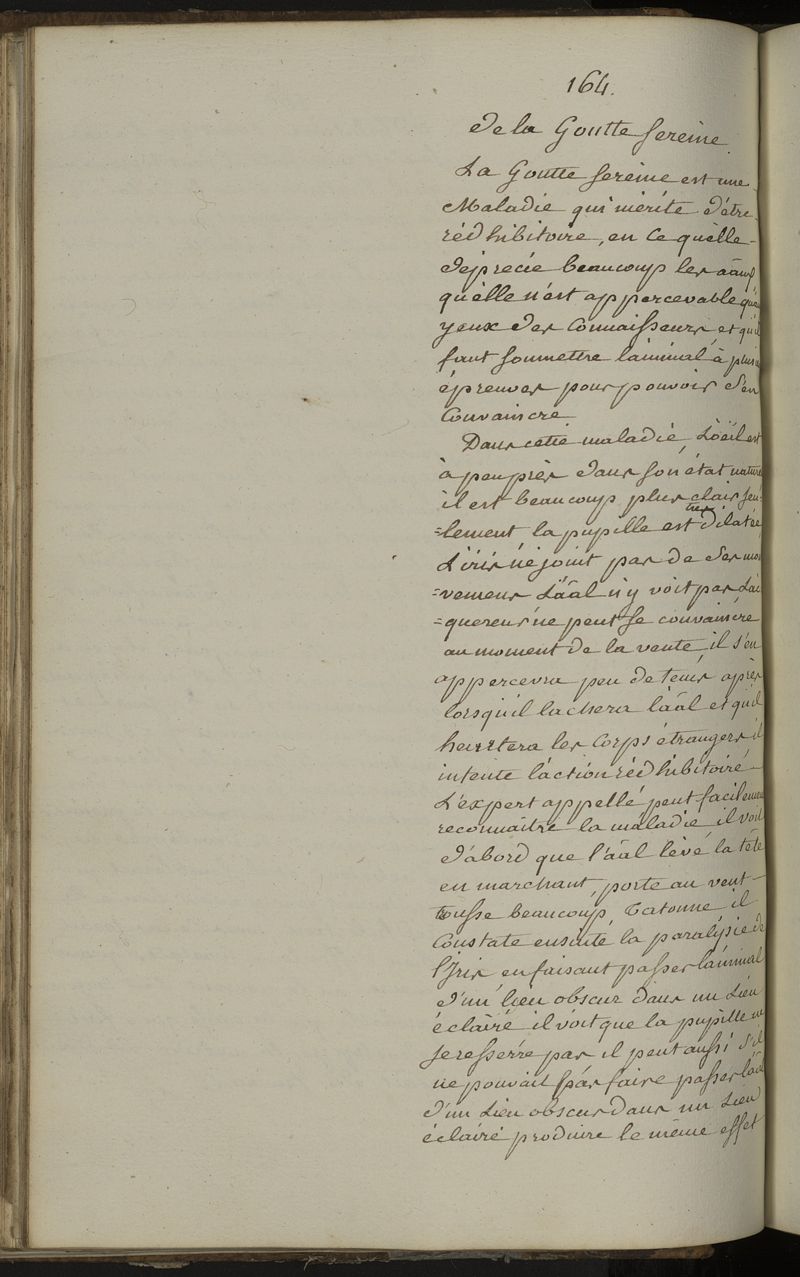 164.
De la Goutte Sereine.
La Goutte Sereine est une
Maladie qui mérite d'être
rédhibitoire, en ce qu'elle
déprecie beaucoup les aãux
qu'elle n'est appercevable qu'aux
yeux des connaisseurs et qu'il
faut soumettre l'animal à plusi
épreuves pour pouvoir s'en
convaincre
Dans cette maladie, l'oëil est
à peuprès dans son état nature
il est beaucoup plus clair seu-
=lement la pupille est très dilatée
L'iris ne jouit pas de ses mou
=vemens L'aãl n'y voit pas L'ac
=quereur ne peut se convaincre
au moment de la vente, il s'en
appercevra peu de tems après
lorsqu'il lachera l'aãl et qu'il
heurtera les corps étrangers il
intente l'action rédhibitoire
L'expert appellé peut facileme
reconnaitre la maladie, il voit
d'abord que l'aãl lève la tête
en marchant, porte au vent
trousse beaucoup, tatonne il
constate ensuite la paralysie de
l'Iris en faisant passer l'animal
d'un lieu obscur dans un Lieu
éclairé il voit que la pupille ne
se resserre pas il peut aussi s'il
ne pouvait pas faire passer l'aãl
d'un Lieu obscur dans un Lieu
éclairé produire le même effet